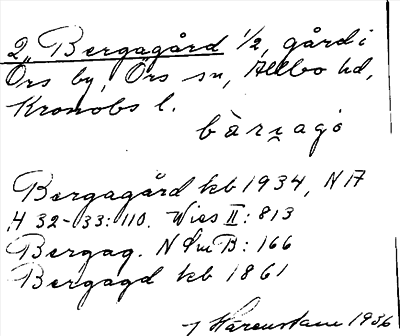 2, Bergagård 1/2, gård i
Örs by, Örs sn, Allbo hd,
Kronobs l.
bàrɲagó
Bergagård kb 1934, N 17
H 32-33:110. Wies II:813
Bergag. N Sm B:166
Bergagd kb 1861
J Hårenstam 1936